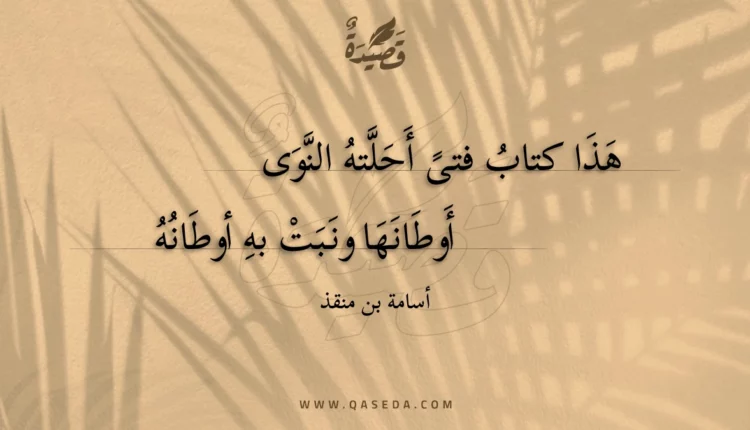 قَصِيدَةٌ
هَذَا كتابُ فتىً أَحَلَّتهُ النَّوَى
أَوطَانَهَا ونَبَتْ بهِ أوطَانُهُ
أسامة بن منقذ
WWW.QASEDA.COM